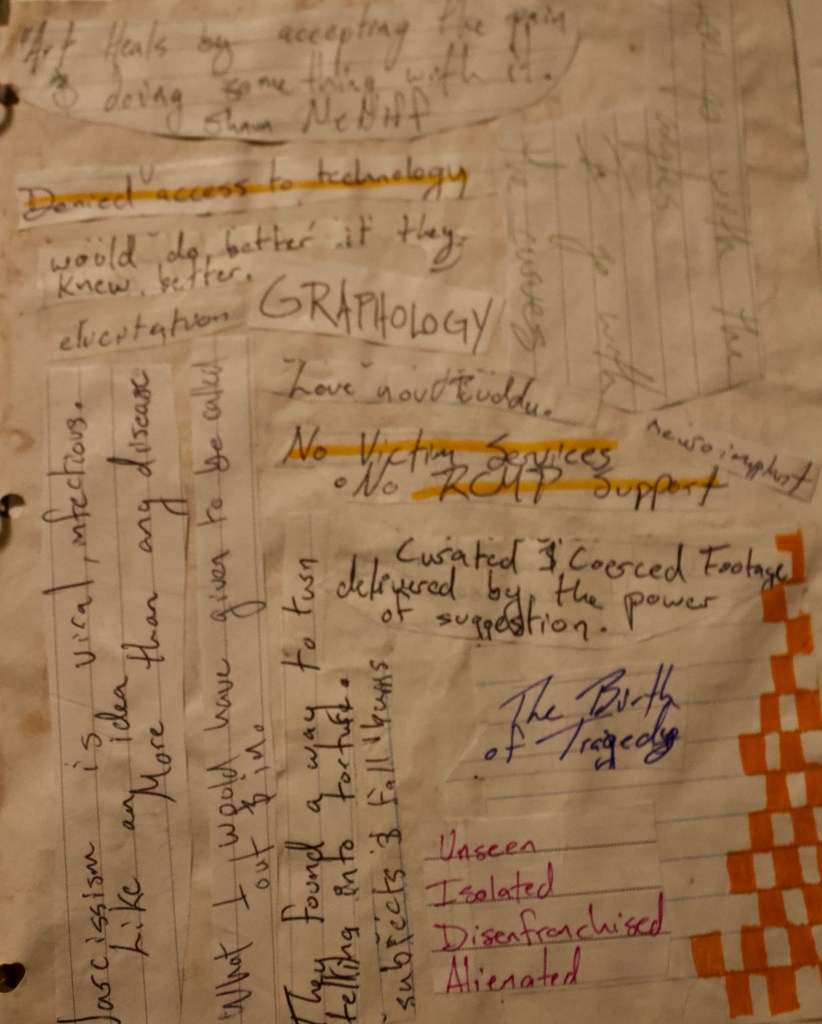 "Art Heals by accepting the pain
& doing something with it.
Shaun McNiff
Denied access to technology
would do better if they
knew better.
elicitation
GRAPHOLOGY
with the
go with
the curves
Love your Buddy.
No Victim Services
• No RCMP Support
neuroimplant
Curated & Coerced Footage
delivered by the power
of suggestion.
The Birth
of Tragedy
Unseen
Isolated
Disenfranchised
Alienated
Narcissism is viral, infectious.
Like an idea
More than any disease
What I would have given to be called
out & in.
They found a way to turn
telling into torture.
subjects & fall bums